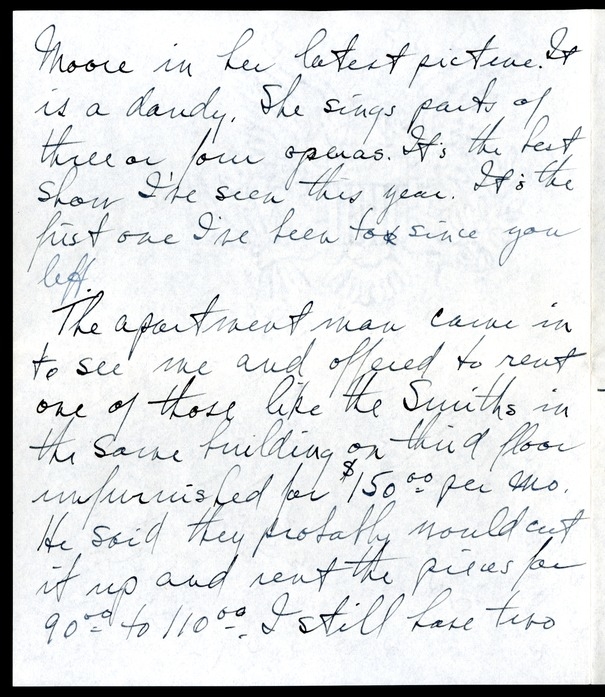 Moore in her latest picture. It
is a dandy. She sings parts of
three or four operas. It's the best
show I've seen this year. It's the
first one I've been to since you
left.
The apartment man came in
to see me and offered to rent
one of those like the Smiths in
the same building on third floor
unfurnished for $150.00 per mo.
He said they probably would cut
it up and rent the pieces for
90.00 to 110.00. I still have two